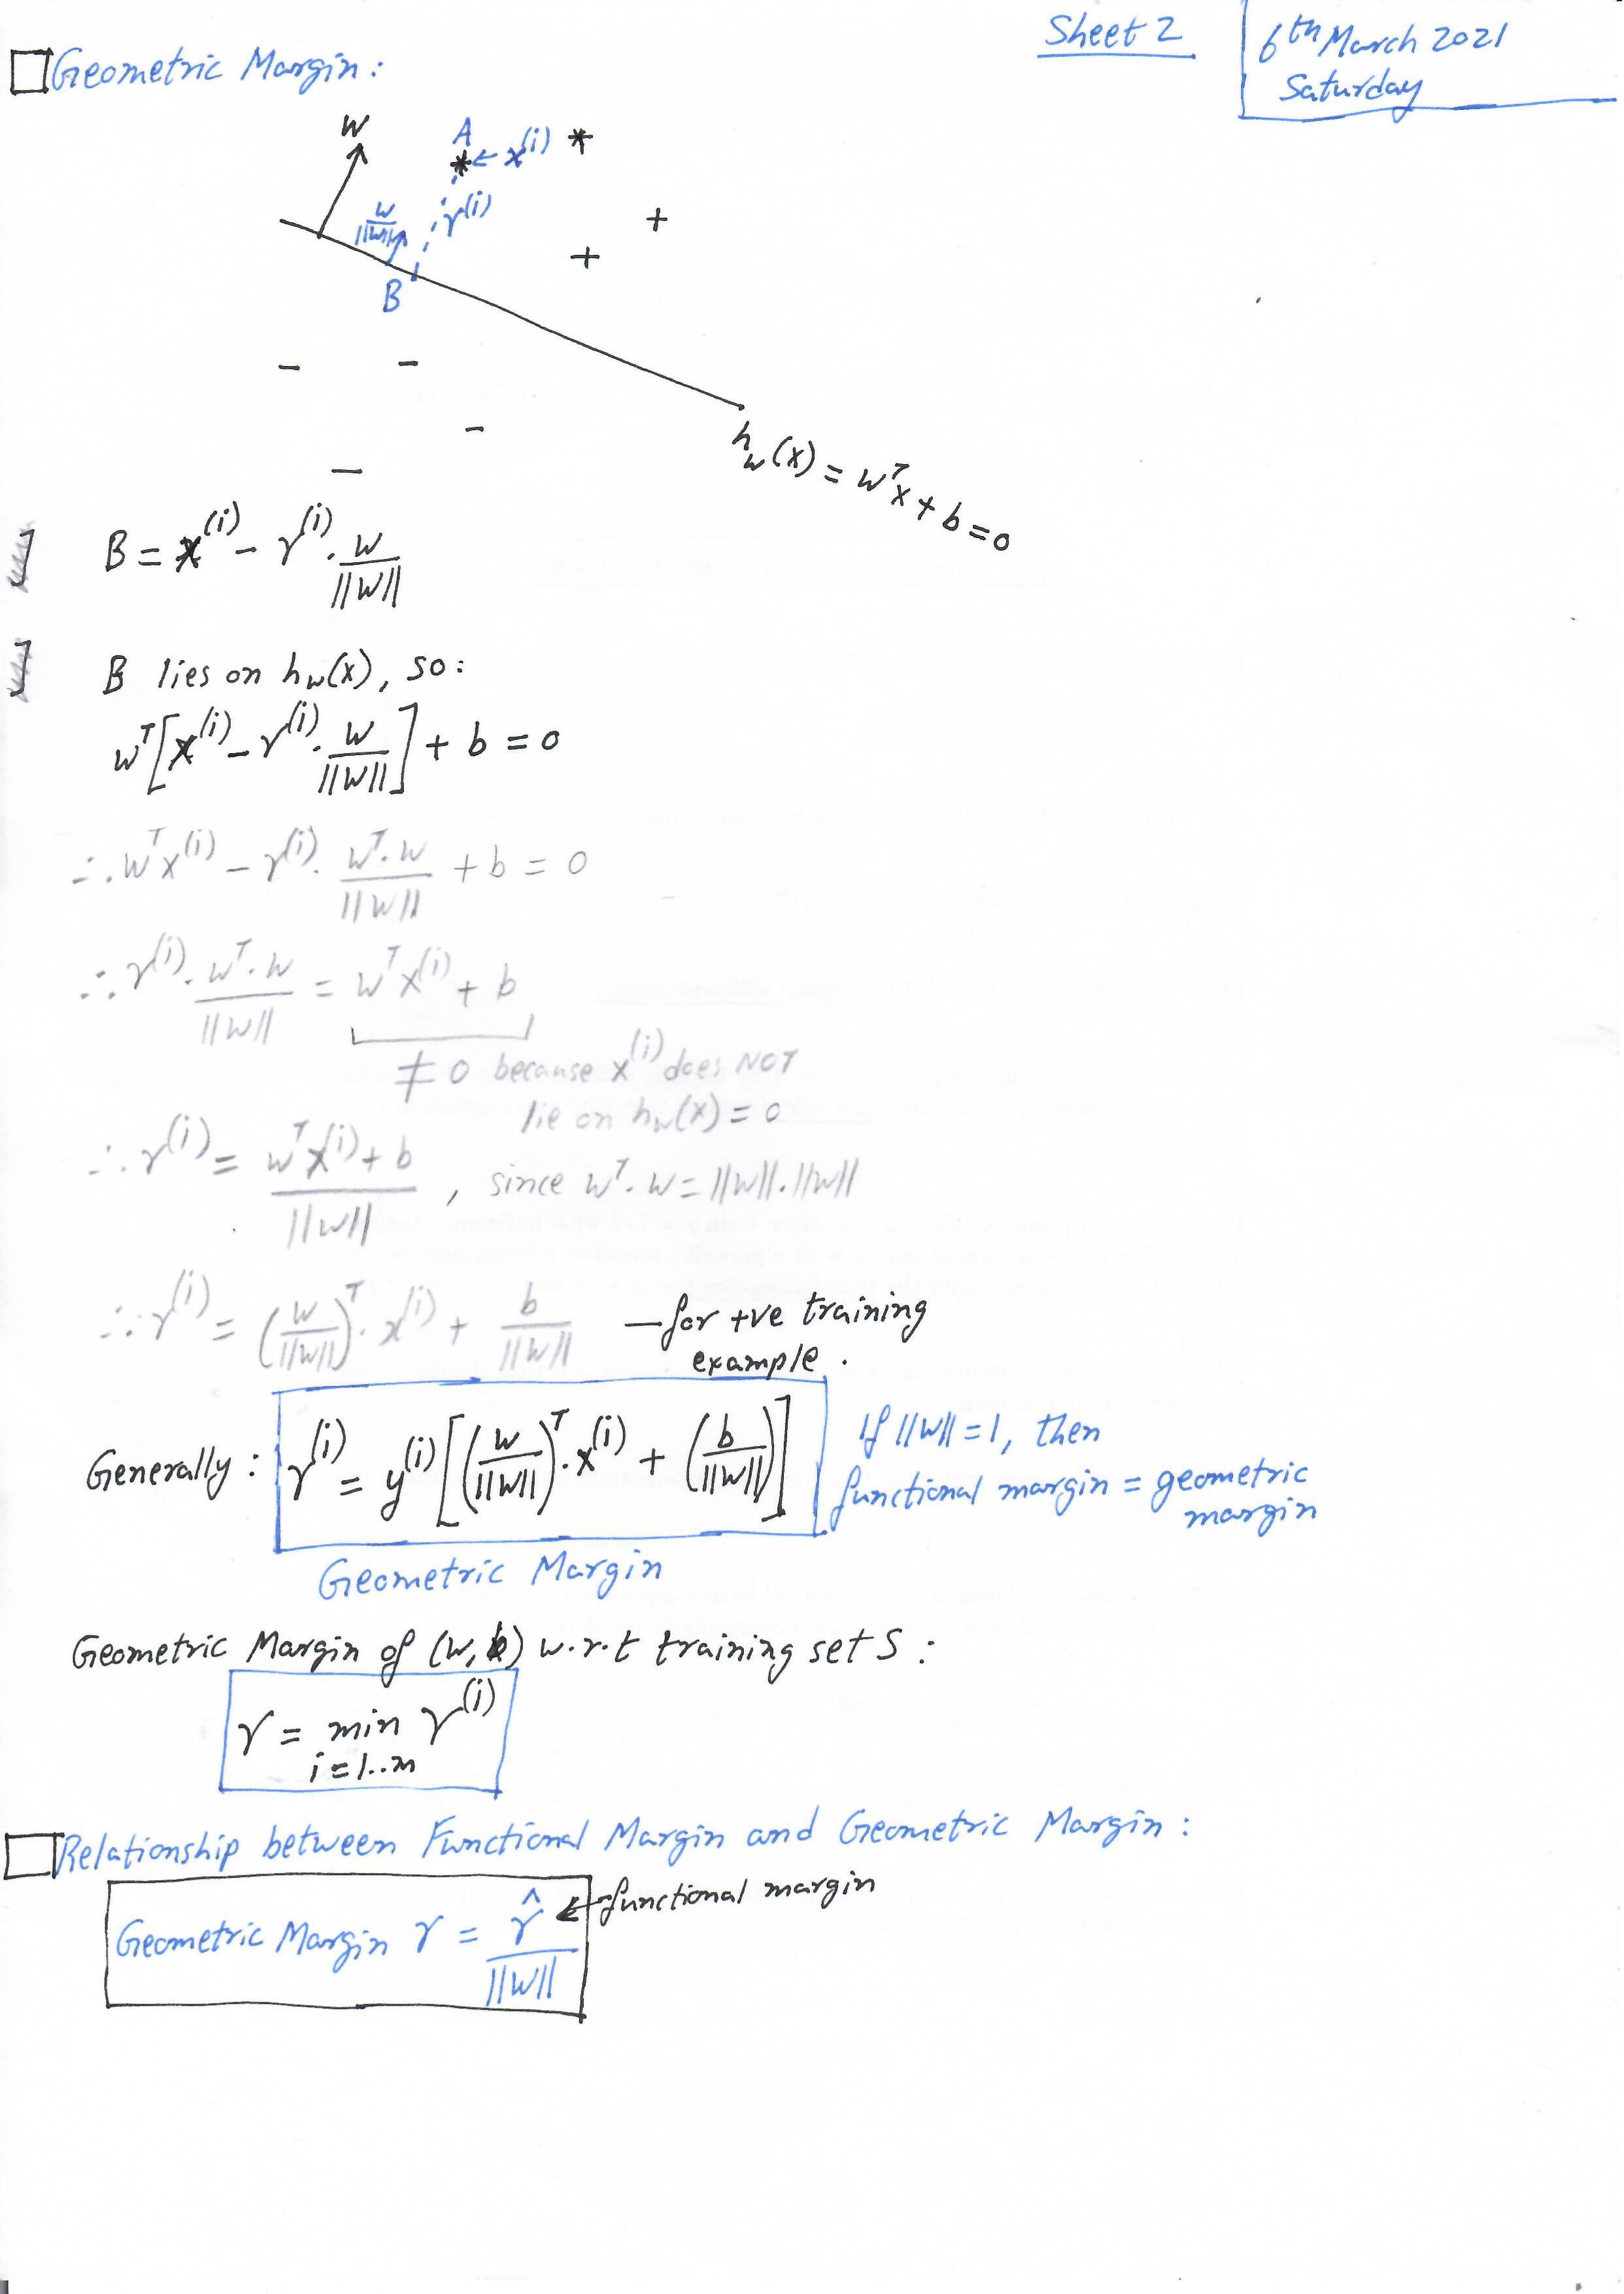 Sheet 2
6th March 2021
Saturday
Geometric Margin:
w
A
* ← x^(i) *
w/||w||
γ^(i)
+
+
B
− −
−
−
h_w(x) = w^T x + b = 0
B = x^(i) − γ^(i) . w/||w||
B lies on h_w(x), so:
w^T [x^(i) − γ^(i) . w/||w||] + b = 0
∴ w^T x^(i) − γ^(i) . w^T.w/||w|| + b = 0
∴ γ^(i) . w^T.w/||w|| = w^T x^(i) + b
≠ 0 because x^(i) does NOT
lie on h_w(x) = 0
∴ γ^(i) = (w^T x^(i) + b)/||w|| , since w^T.w = ||w||.||w||
∴ γ^(i) = (w/||w||)^T . x^(i) + b/||w|| — for +ve training
example.
Generally: γ^(i) = y^(i) [(w/||w||)^T . x^(i) + (b/||w||)]
If ||w|| = 1, then
functional margin = geometric
margin
Geometric Margin
Geometric Margin of (w, b) w.r.t training set S:
γ = min γ^(i)
i = 1..m
Relationship between Functional Margin and Geometric Margin:
Geometric Margin γ = γ̂/||w|| ← functional margin